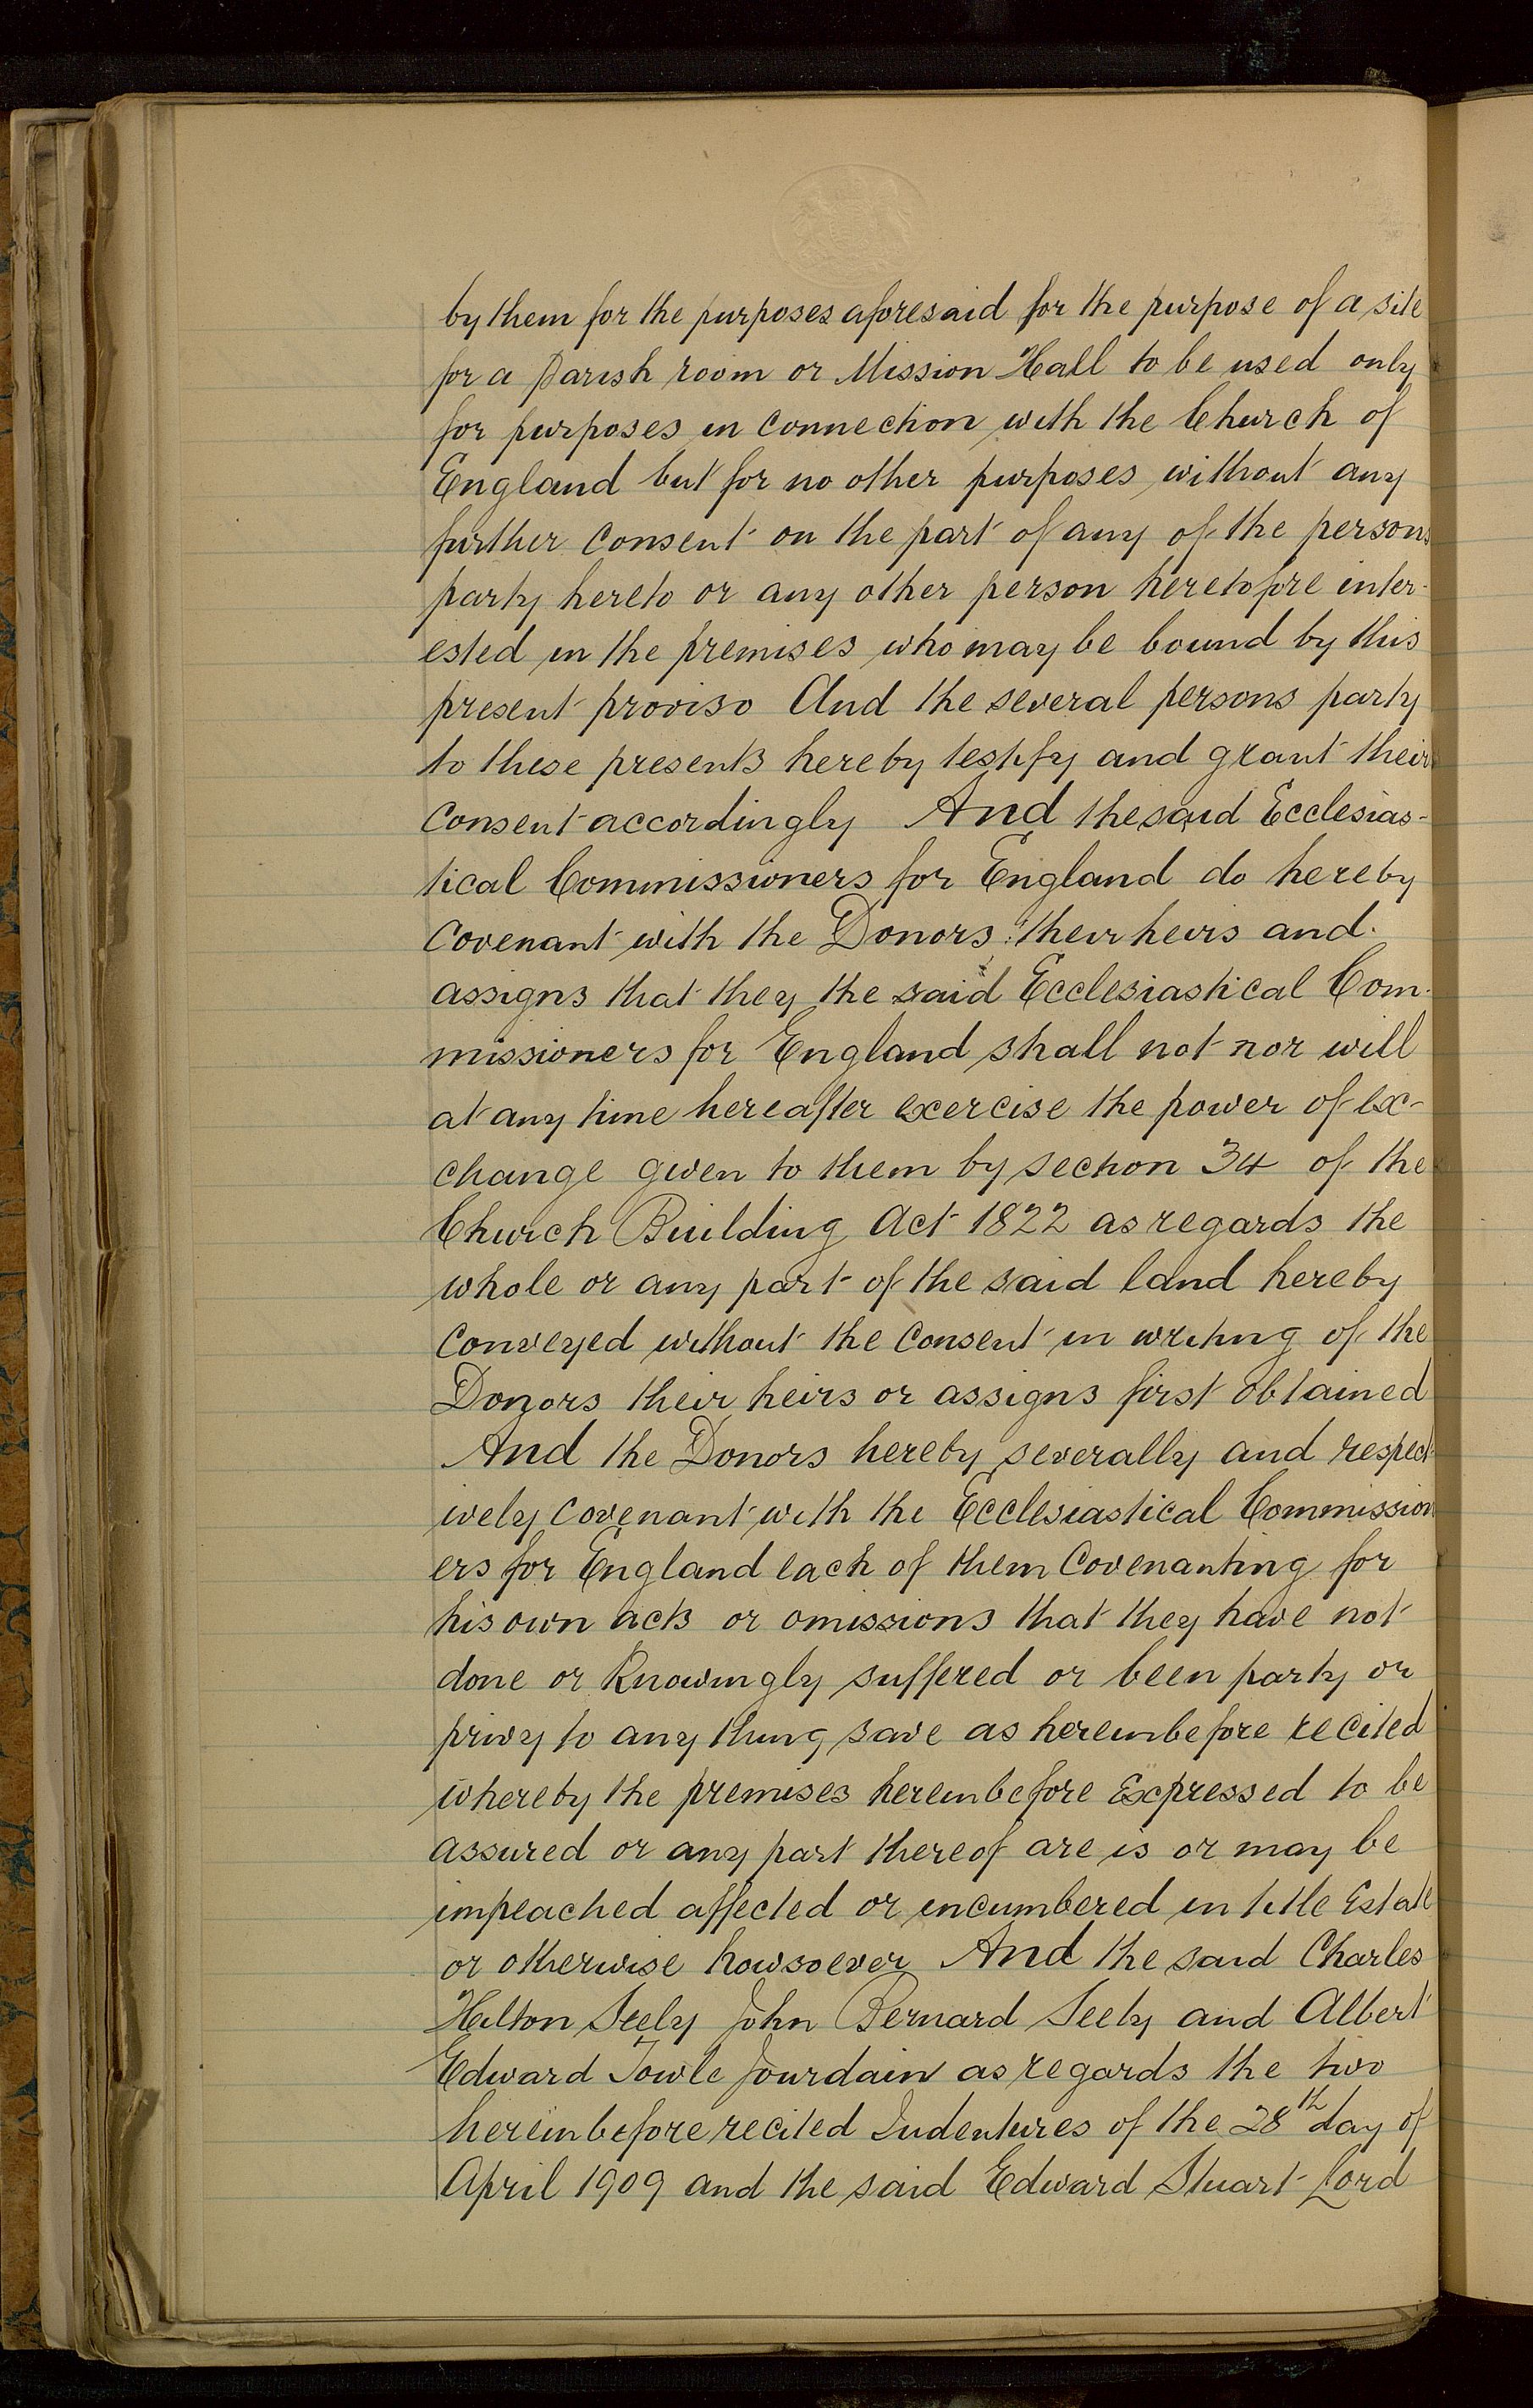 by them for the purposes aforesaid for the purpose of a site
for a parish room or Mission Hall to be used only
for purposes in connection with the Church of
England but for no other purposes without any
further consent on the part of any of the persons
party hereto or any other person heretofore inter-
ested in the premises who may be bound by this
present proviso And the several persons party
to these presents hereby testify and grant their
consent accordingly And the said Ecclesias-
tical Commissioners for England do hereby
covenant with the Donors their heirs and
assigns that they the said Ecclesiastical Com-
missioners for England shall not nor will
at any time hereafter exercise the power of ex-
change given to them by section 34 of the
Church Building Act 1822 as regards the
whole or any part of the said land hereby
conveyed without the consent in writing of the
Donors their heirs or assigns first obtained
And the Donors hereby severally and respect-
ively covenant with the Ecclesiastical Commission
ers for England each of them Covenanting for
his own acts or omissions that they have not
done or knowingly suffered or been party or
privy to any thing save as hereinbefore recited
whereby the premises hereinbefore expressed to be
assured or any part thereof are is or may be
impeached affected or incumbered in title Estate
or otherwise howsoever And the said Charles
Hilton Seely John Bernard Seely and Albert
Edward Towle Jourdain as regards the two
hereinbefore recited Indentures of the 28th day of
April 1909 and the said Edward Stuart Lord